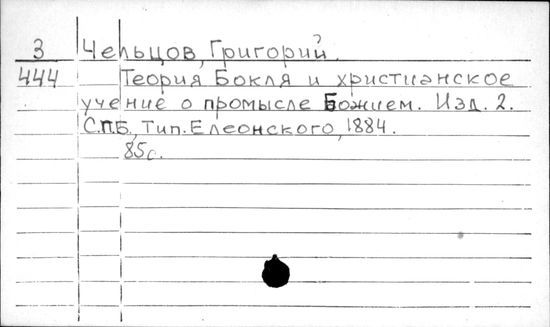 3 Чельцов, Григорий.
444 Теория Бокля и христианское
учение о промысле Божием. Изд. 2.
С.П.Б., Тип. Елеонского, 1884.
85с.